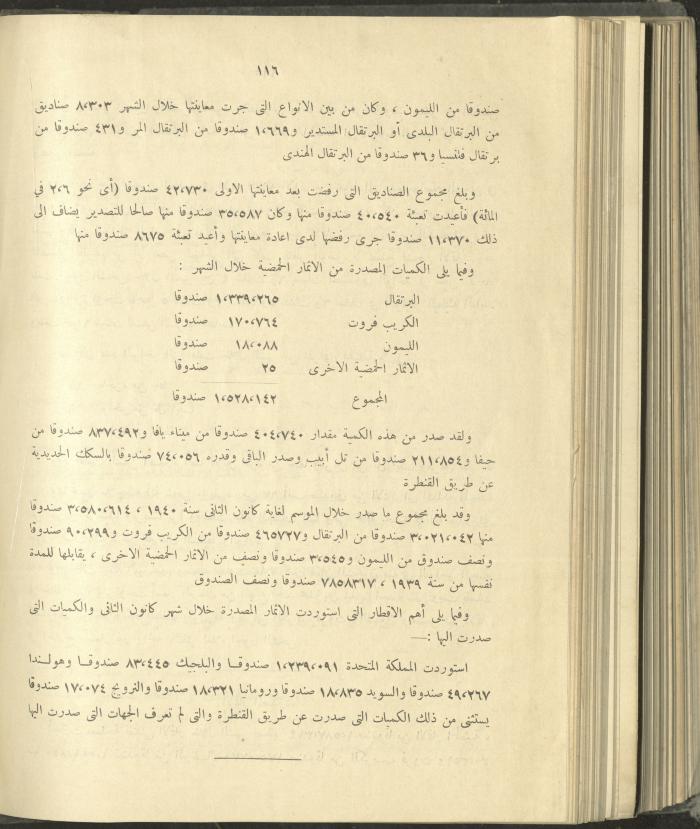 ١١٦
صندوقا من الليمون ، وكان من بين الانواع التى جرت معاينتها خلال الشهر ٨،٣٠٣ صناديق
من البرتقال البلدى أو البرتقال المستدير و١،٦٦٩ صندوقا من البرتقال المر و٤٣١ صندوقا من
برتقال فلنسيا و٣٦ صندوقا من البرتقال الهندى
وبلغ مجموع الصناديق التى رفضت بعد معاينتها الاولى ٤٢،٧٣٠ صندوقا (أى نحو ٢،٦ فى
المائة) فأعيدت تعبئة ٤٠،٥٤٠ صندوقا منها وكان ٣٥،٥٨٧ صندوقا منها صالحا للتصدير يضاف الى
ذلك ١١،٣٧٠ صندوقا جرى رفضها لدى اعادة معاينتها وأعيد تعبئة ٨٦٧٥ صندوقا منها
وفيما يلى الكميات المصدرة من الاثمار الحمضية خلال الشهر :
البرتقال ١،٣٣٩،٢٦٥ صندوقا
الكريب فروت ١٧٠،٧٦٤ صندوقا
الليمون ١٨،٠٨٨ صندوقا
الاثمار الحمضية الاخرى ٢٥ صندوقا
المجموع ١،٥٢٨،١٤٢ صندوقا
ولقد صدر من هذه الكمية مقدار ٤٠٤،٧٤٠ صندوقا من ميناء يافا و٨٣٧،٤٩٢ صندوقا من
حيفا و٢١١،٨٥٤ صندوقا من تل أبيب وصدر الباقى وقدره ٧٤،٠٥٦ صندوقا بالسكك الحديدية
عن طريق القنطرة
وقد بلغ مجموع ما صدر خلال الموسم لغاية كانون الثانى سنة ١٩٤٠ ، ٣،٥٨٠،٦١٤ صندوقا
منها ٣،٠٢١،٠٤٢ صندوقا من البرتقال و٤٦٥٧٢٧ صندوقا من الكريب فروت و٩٠،٢٩٩ صندوقا
ونصف صندوق من الليمون و٣،٥٤٥ صندوقا ونصف من الاثمار الحمضية الاخرى ، يقابلها للمدة
نفسها من سنة ١٩٣٩ ، ٧٨٥٨٣١٧ صندوقا ونصف الصندوق
وفيما يلى أهم الاقطار التى استوردت الاثمار المصدرة خلال شهر كانون الثانى والكميات التى
صدرت اليها :—
استوردت المملكة المتحدة ١،٢٣٩،٠٩١ صندوقا والبلجيك ٨٣،٤٤٥ صندوقا وهولندا
٤٩،٢٦٧ صندوقا والسويد ١٨،٨٣٥ صندوقا ورومانيا ١٨،٣٢١ صندوقا والنرويج ١٧،٠٧٤ صندوقا
يستثنى من ذلك الكميات التى صدرت عن طريق القنطرة والتى لم تعرف الجهات التى صدرت اليها